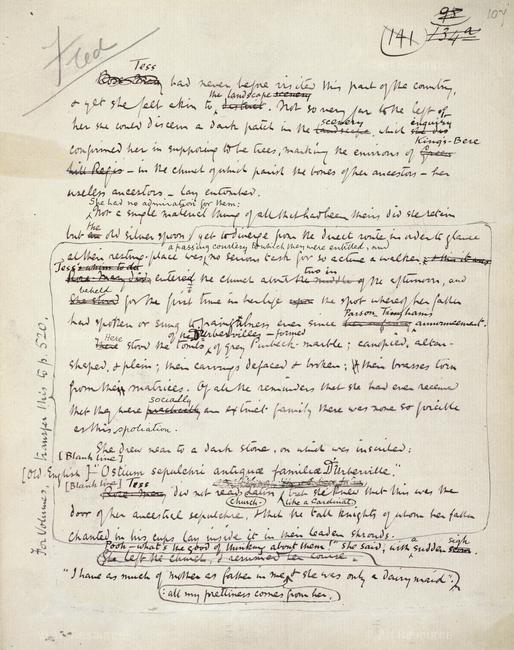 Fred
95
107
141 134a
Tess
Rose-Mary had never before visited this part of the country,
the landscape scenery
& yet she felt akin to district. Not so very far to the left of
scenery enquiry
her she could discern a dark patch in the landscape, which she
King's-Bere
confirmed her in supposing to be trees, marking the environs of Green
hill Regis – in the church of which parish the bones of her ancestors – her
useless ancestors – lay entombed.
She had no admiration for them:
Not a single material thing of all that had been theirs did she retain
the
but an old silver spoon / yet to diverge from the direct route in order to glance
a passing courtesy to which they were entitled, and
at their resting-place was no serious task for so active a walker,
Tess's whim to do
entered the church about the middle of the afternoon, and
two in
beheld
She stood for the first time in her life upon the spot whereof her father
Parson Tringham's
had spoken or sung to painfulness ever since her announcement.
Here of the D'Urbervilles – formed
There stood the tombs, of grey Purbeck-marble; canopied, altar-
shaped, & plain; their carvings defaced & broken; their brasses torn
from their matrices. Of all the reminders that she had ever received
socially
that they were practically an extinct family there was none so forcible
as this spoliation.
She drew near to a dark stone, on which was inscribed:
[Blank line]
[Old-English] "Ostium sepulchri antiquae familiae D'Urberville."
[Blank line] Tess
Rose-Mary did not read Latin but she knew that this was the
(Church- like a Cardinal,
door of her ancestral sepulchre, & that the tall knights of whom her father
chanted in his cups lay inside it in their leaden shrouds.
"Pooh – what's the good of thinking about them!" she said, with a sudden sigh
She left the church, & resumed her course.
"I have as much of mother as father in me, & she was only a dairymaid";
: all my prettiness comes from her.
For volumes, transfer this to p. 520.